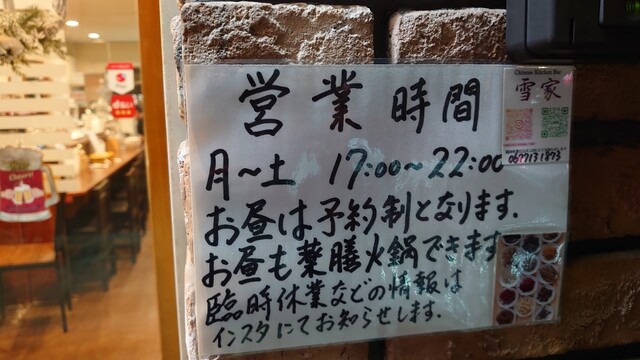 営業時間
月~土 17:00~22:00
お昼は予約制となります.
お昼も薬膳火鍋できます
臨時休業などの情報は
インスタにてお知らせします.
Chinese Kitchen Bar
雪家
Cheers!